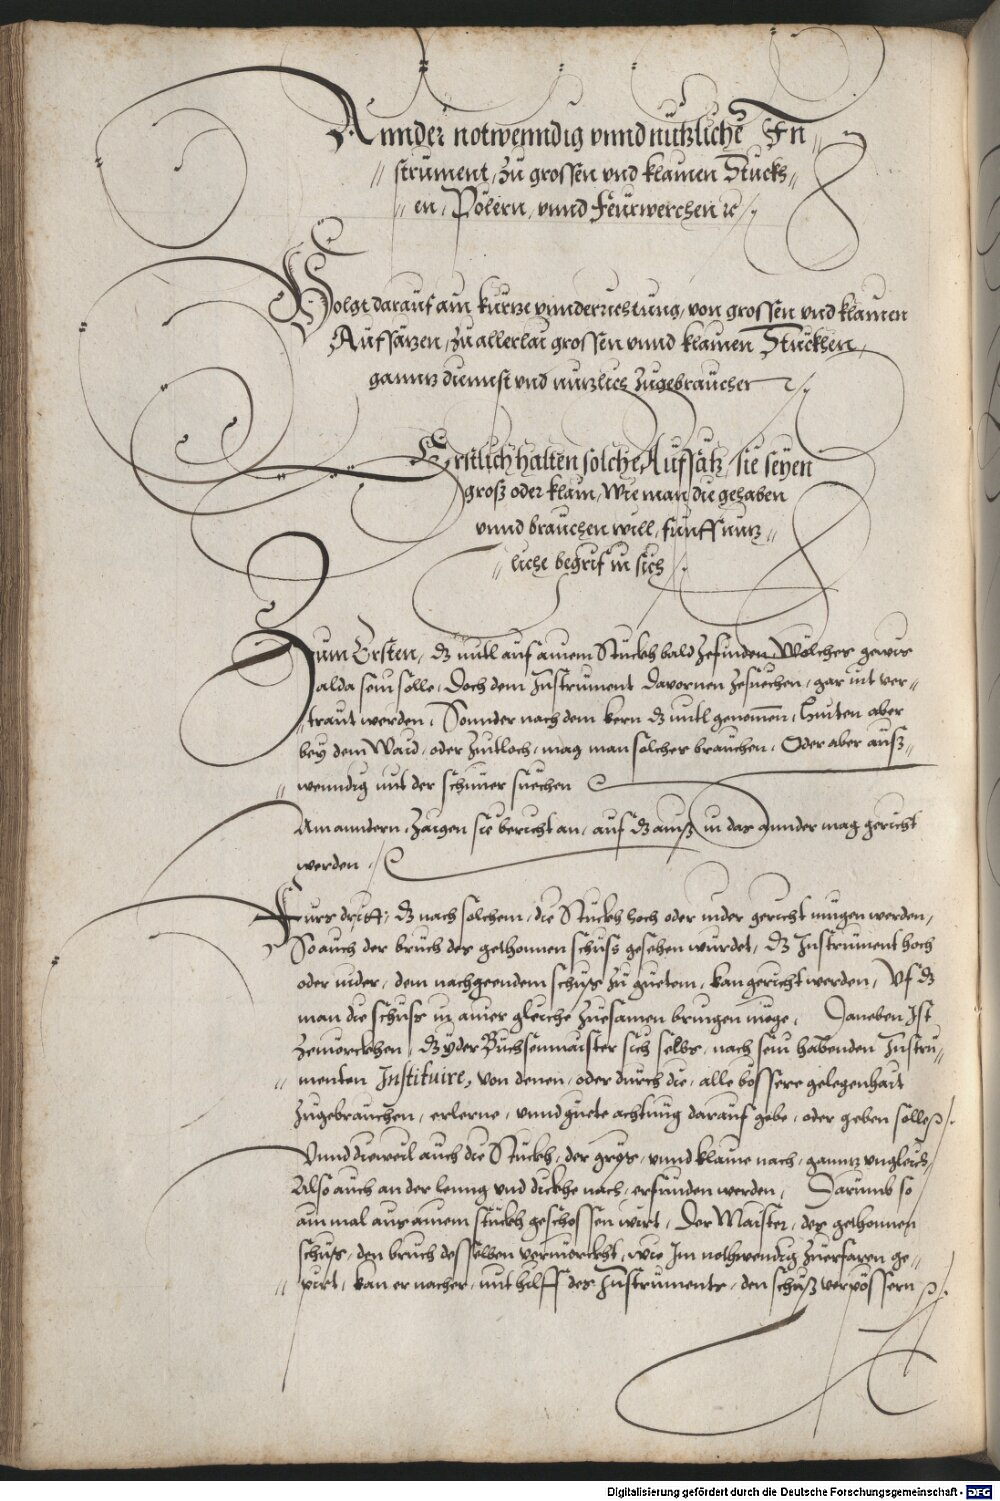 Annder notwenndig vnnd nutzliche In-
strument, zu grossen vnd klainen Stuckh-
en, Pölern, vnnd Feürwerchen ꝛc.
Volgt darauf ain kurtze vnnderrichtung, von grossen vnd klainen
Aufsätzen, zu allerlai grossen vnnd klainen Stuckhen,
ganntz diennst vnd nutzlich zugebrauchen ꝛc.
Erstlich halten solche Aufsätz, sie seyen
groß oder klain, Wie man die gehaben
vnnd brauchen will, funff nutz-
liche begrif in sich.
Zum Ersten, dz mitl auf ainem Stuckh bald zefinden, Wölches gewis
alda sein solle, Doch dem Instrument davornen zesuechen, gar nit ver-
traut werden, Sonnder nach dem kern dz mitl genomen, Hinten aber
bey dem Waid, oder Zintloch, mag man solches brauchen. Oder aber auß-
wenndig mit der schnuer suechen
Am anndern, Zaigen sie bericht an, auf dz auß in das annder mag gericht
werden.
Furs dritt, dz nach solchem, die Stuckh hoch oder nider gericht mugen werden,
So auch der bruch des gethonnen schuss gesehen wurdet, dz Instrument hoch
oder nider, dem nachgeendem schuss zu guetem, kan gericht werden, Vf dz
man die schuss in ainer gleiche zuesamen bringen möge, Daneben Ist
Zemerckhen, dz yder Buchsenmaister sich selbs, nach sein habenden Instru-
menten Instituire, von denen, oder durch die, alle bössere gelegenhait
zugebrauchen, erlerne, vnnd guete achtung darauf gebe, oder geben solle.
Vnnd dieweil auch die Stuckh, der gröss, vnnd klaine nach, ganntz vngleich,
Also auch an der leung vnd dickhe nach, erfunden werden, Darumb so
ain mal aus ainem stuckh geschossen wirt, Der Maister, des gethonnen
schuss, den bruch desselben vermerckht, wie Im nothwendig zuerfaren ge-
pürt, kan er nacher, mit hilff des Instruments, den schuß verpössern.
Digitalisierung gefördert durch die Deutsche Forschungsgemeinschaft - DFG